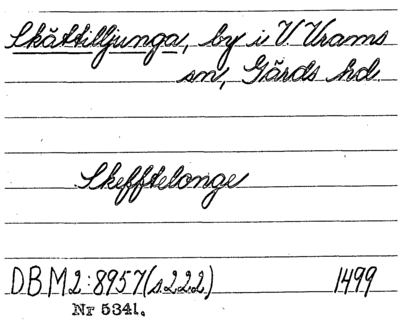 Skättilljunga, by i V. Vrams
sn, Gärds hd.
Skefftelonge
DBM 2:8957 (s.222) 1499
Nr 5341.